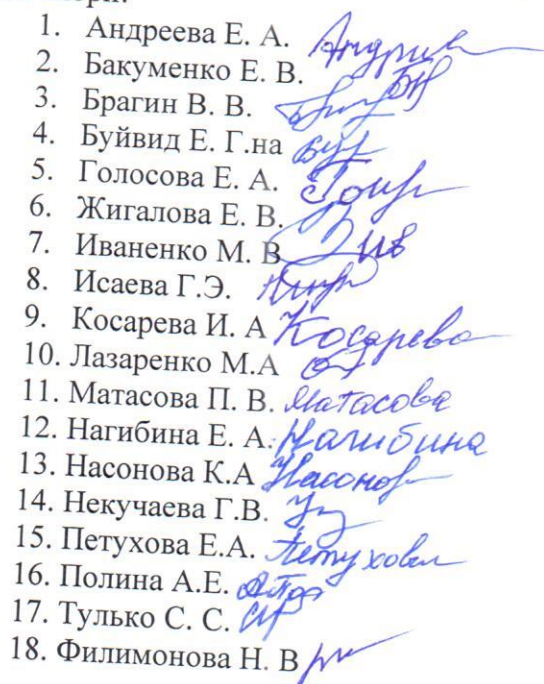 1. Андреева Е. А.
2. Бакуменко Е. В.
3. Брагин В. В.
4. Буйвид Е. Г.на
5. Голосова Е. А.
6. Жигалова Е. В.
7. Иваненко М. В
8. Исаева Г.Э.
9. Косарева И. А Косарева
10. Лазаренко М.А
11. Матасова П. В. Матасова
12. Нагибина Е. А. Нагибина
13. Насонова К.А
14. Некучаева Г.В.
15. Петухова Е.А. Петухова
16. Полина А.Е.
17. Тулько С. С.
18. Филимонова Н. В